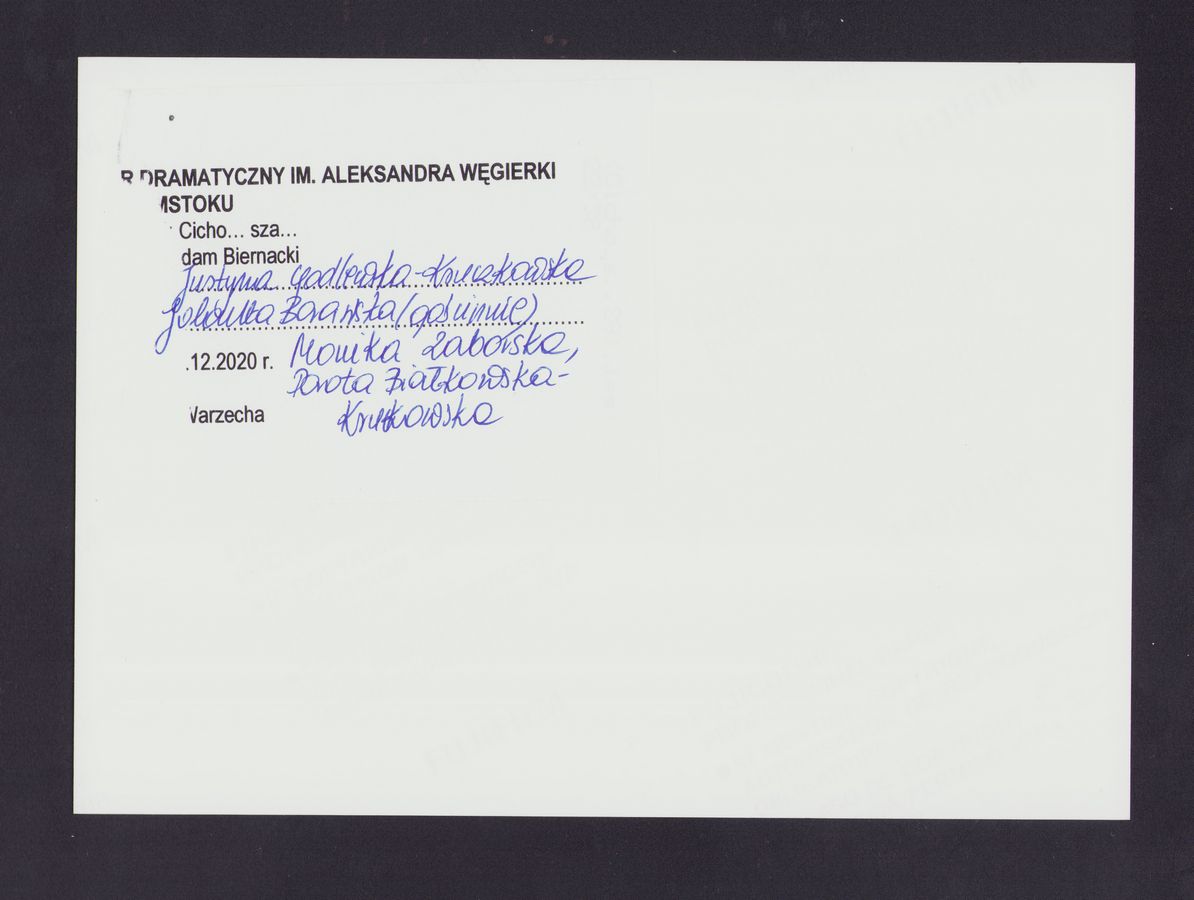 R DRAMATYCZNY IM. ALEKSANDRA WĘGIERKI
MSTOKU
Cicho... sza...
dam Biernacki
Justyna Godlewska-Kruczkowska
Jolanta Borowska (gościnnie)
.12.2020 r. Monika Zaborska,
Dorota Białkowska-
Krukowska
Warzecha